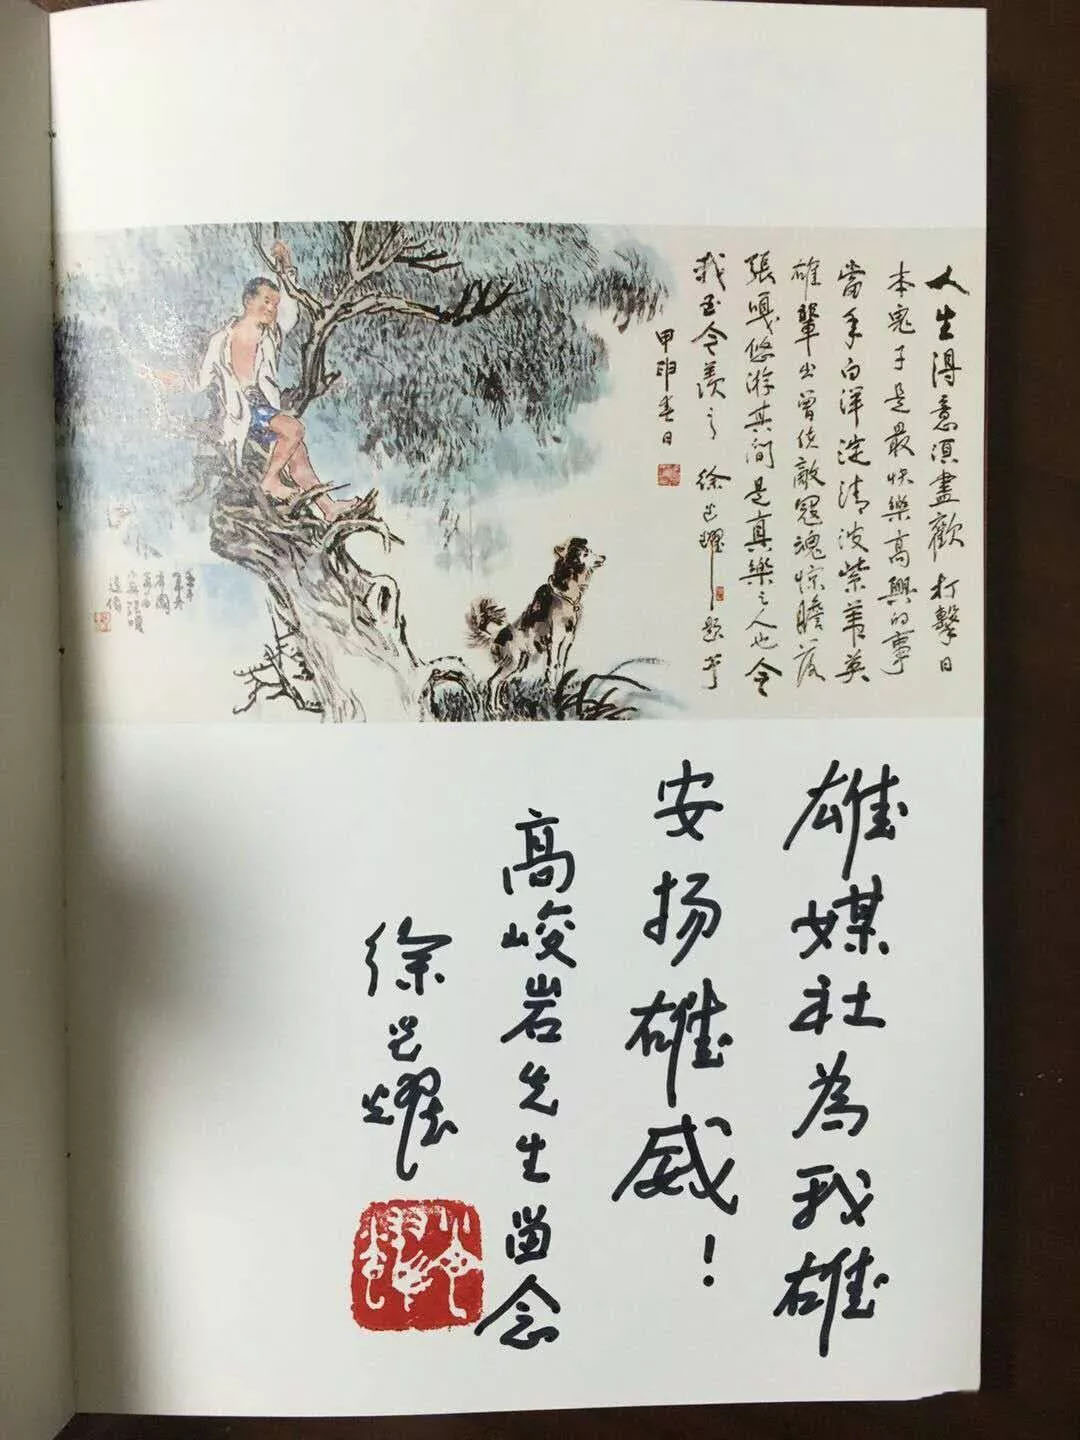 人生得意須盡歡打擊日
本鬼子是最快樂高興的事
當年白洋淀清波紫葦英
雄輩出曾使敵寇魂惊膽落
張嘎悠游其間是真樂之人也令
我至今羨之 徐光耀题字
甲申春日
雄媒社為我雄
安扬雄威！
高峻岩先生留念
徐光耀